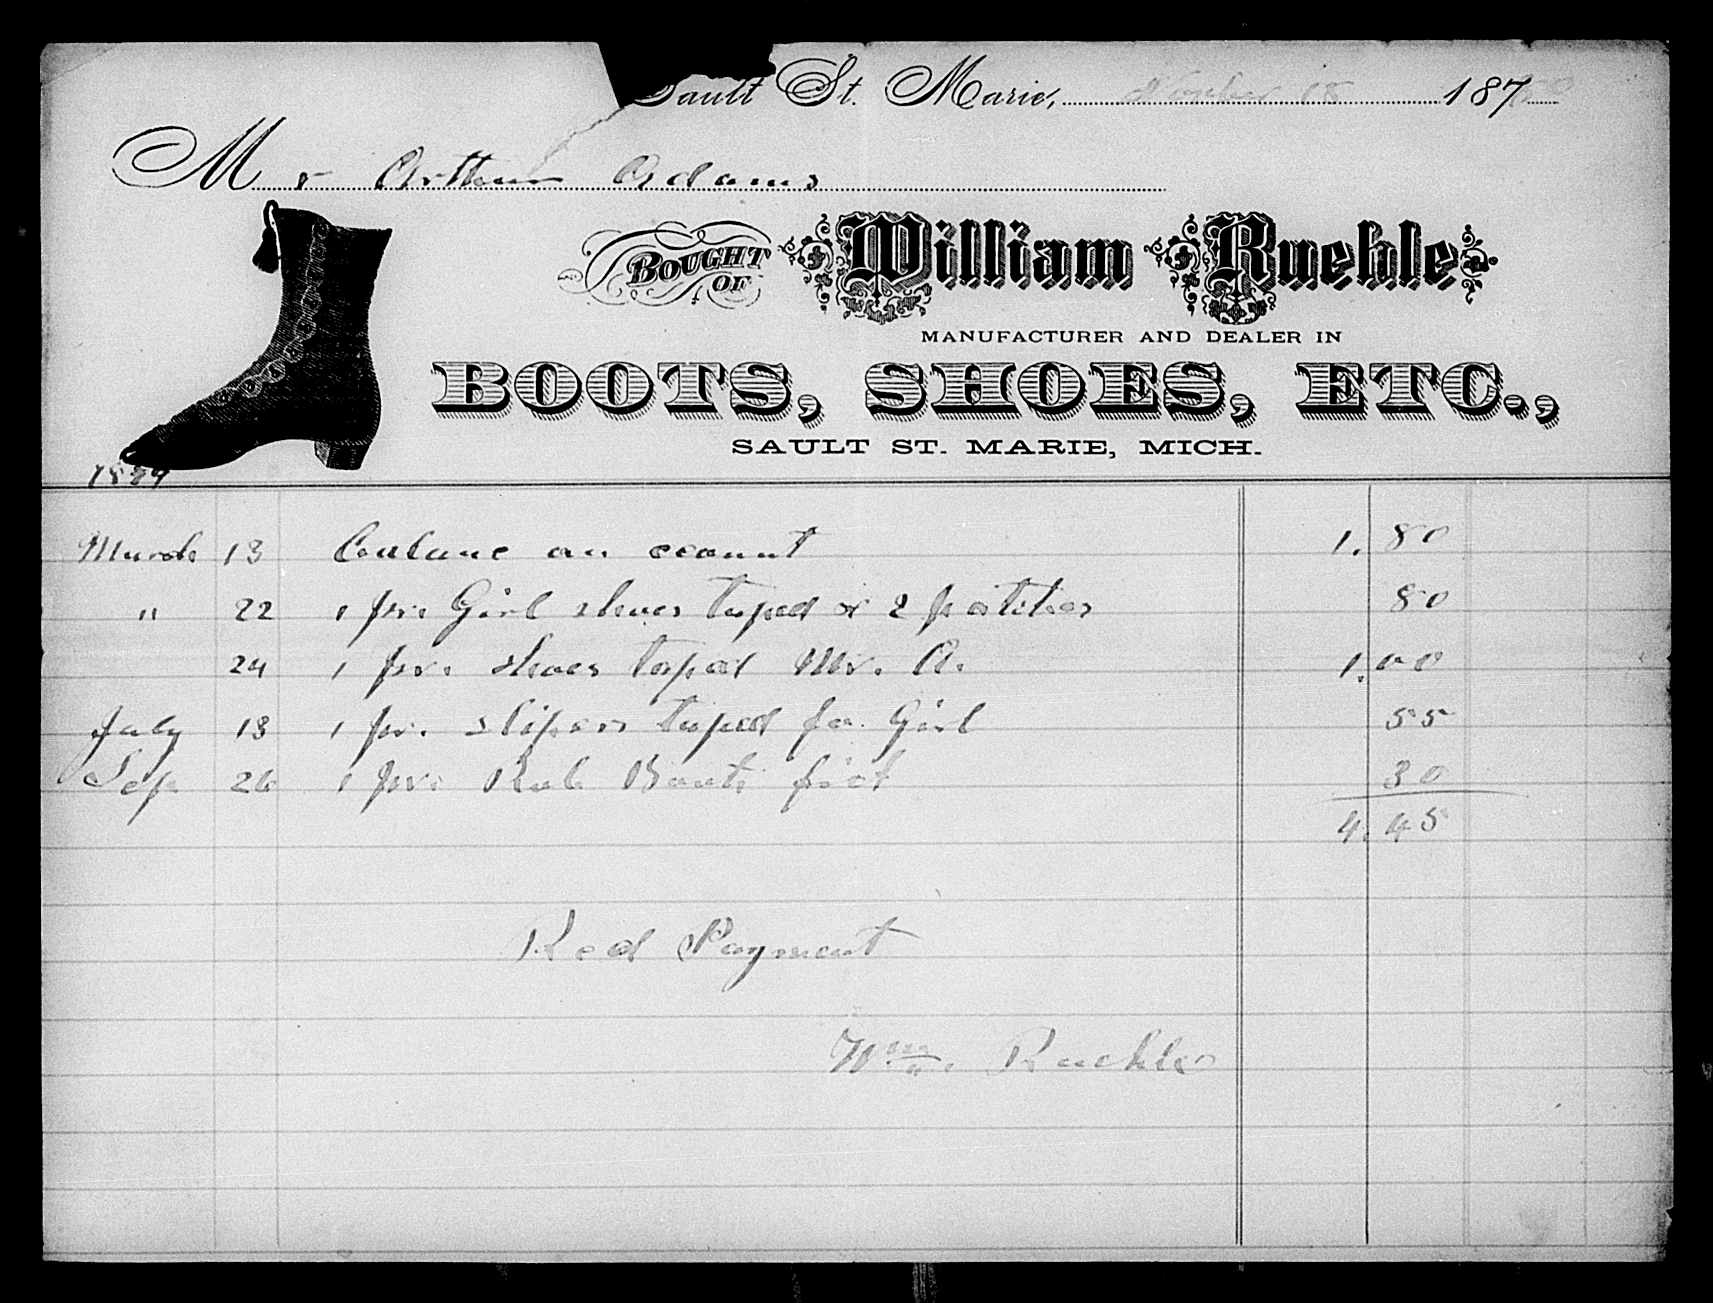 Sault St. Marie, November 18 187
Mr Arthur Adams
BOUGHT OF William Ruehle
MANUFACTURER AND DEALER IN
BOOTS, SHOES, ETC.,
SAULT ST. MARIE, MICH.
1879
March 13 Balanc on acount 1.80
" 22 1 pr. Girl shoes taped & 2 patches 80
24 1 pr. shoes taped Mr. A. 1.00
July 13 1 pr. slipers taped for Girl 55
Sep 26 1 pr. Rub Boots fixt 30
4.45
Recd Payment
Wm. Ruehle